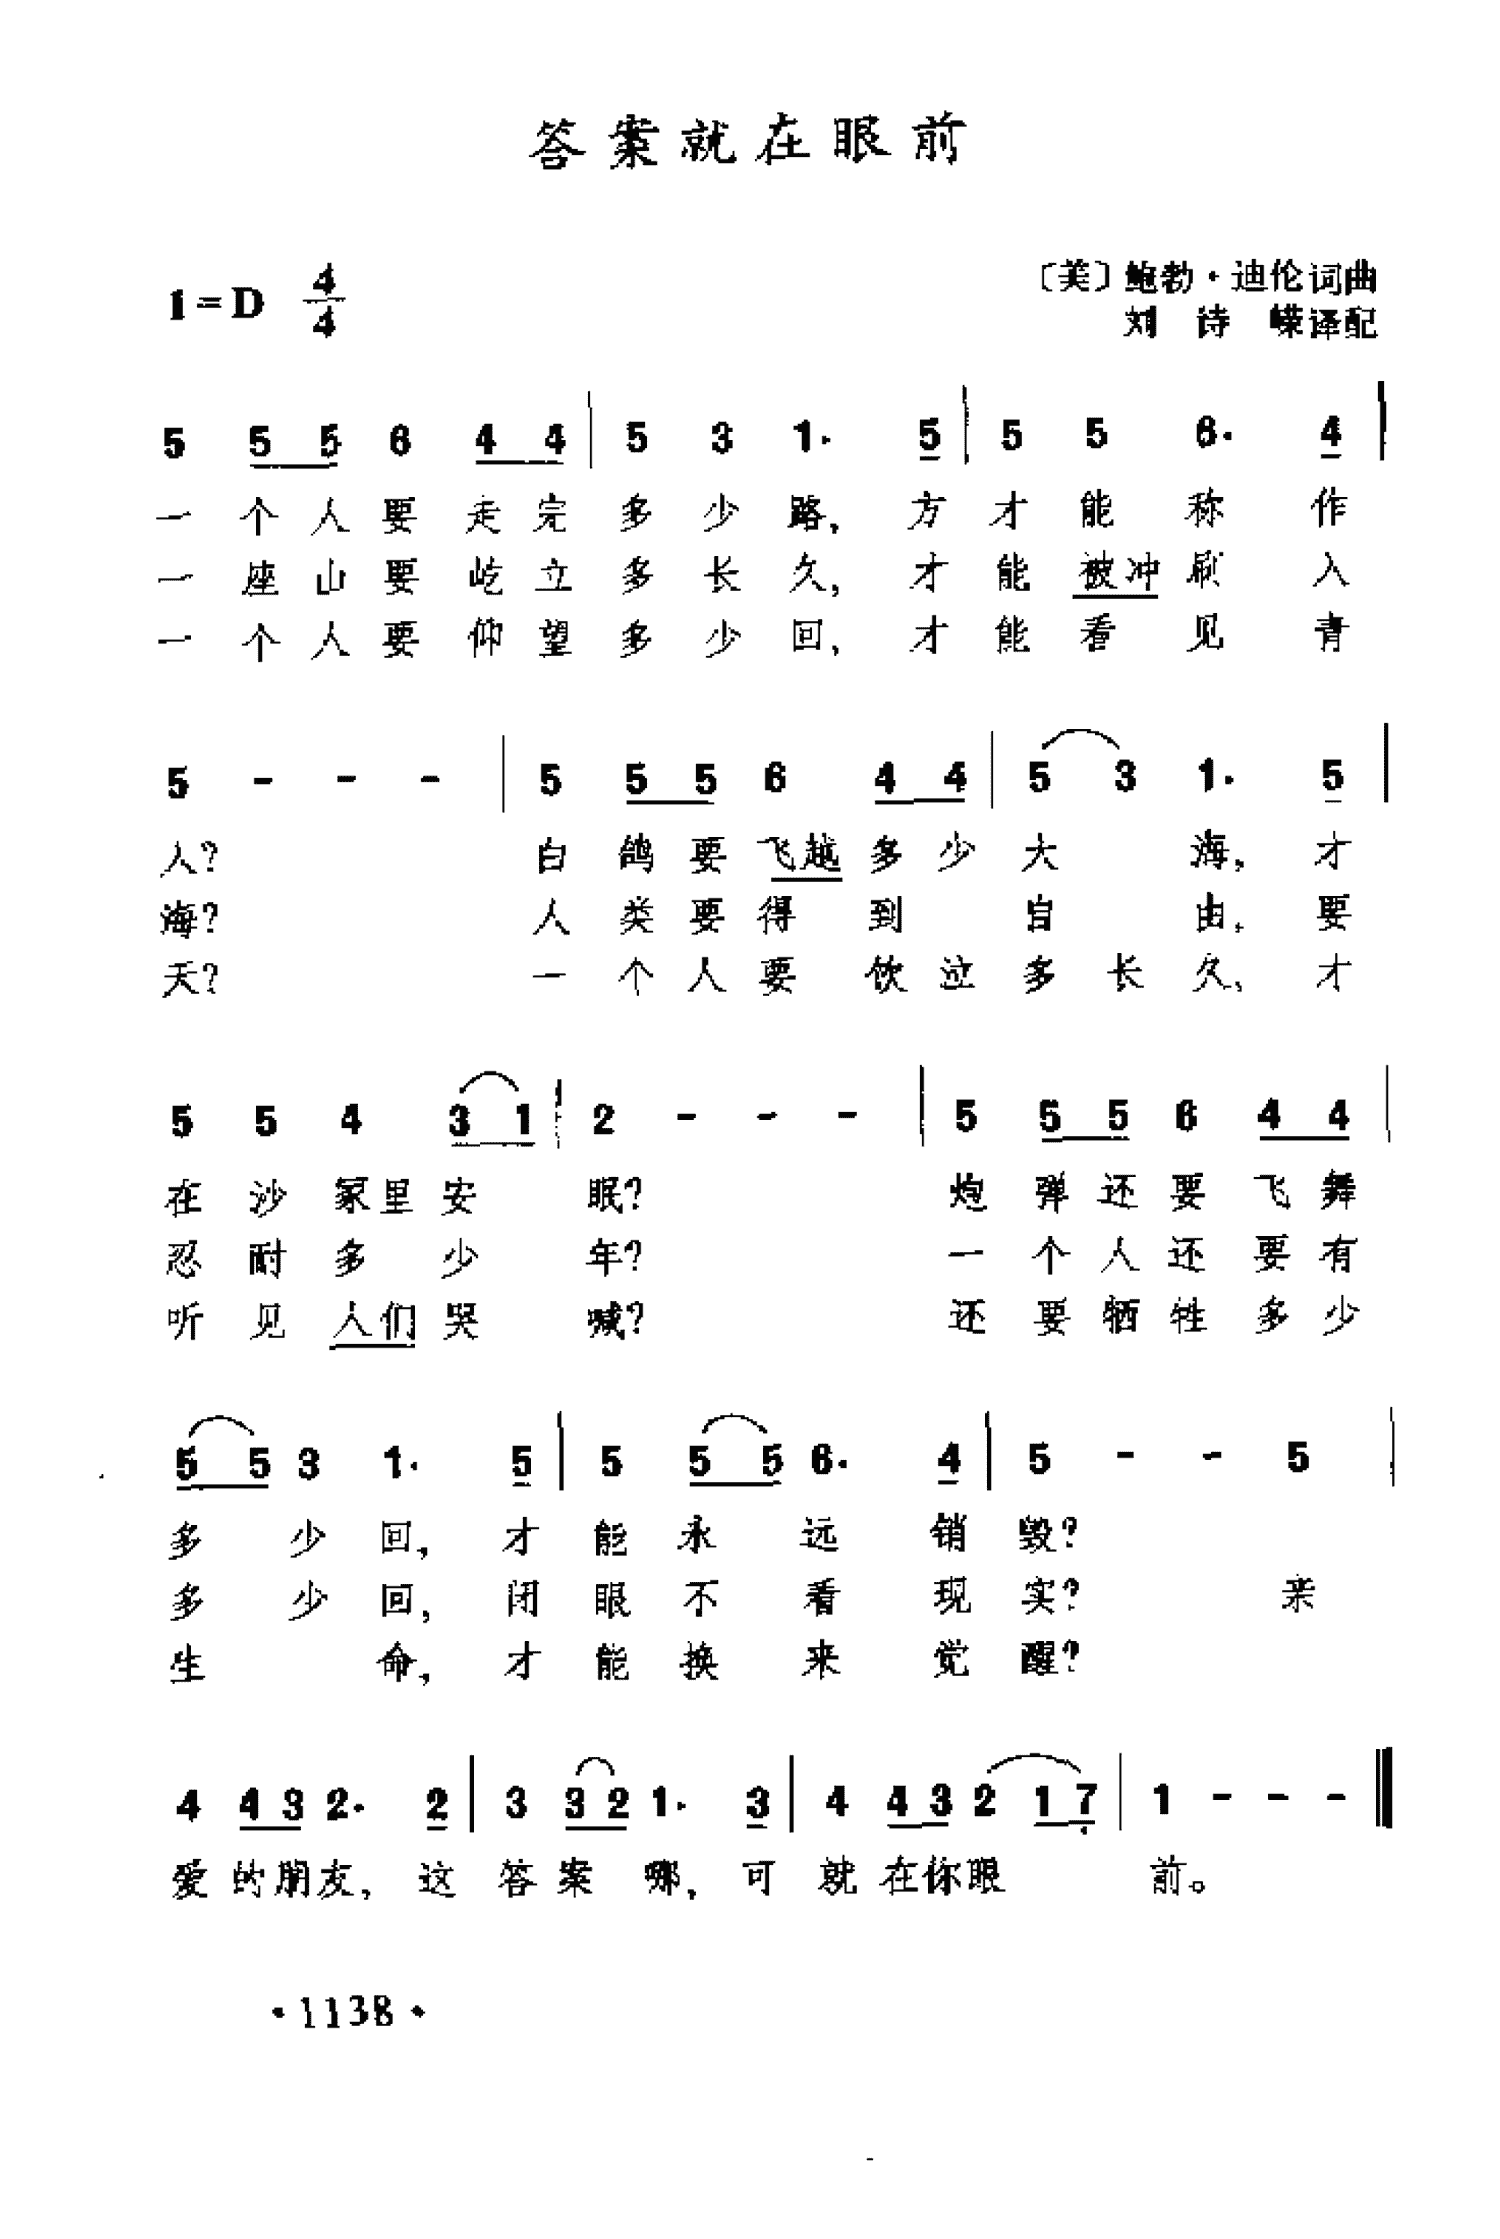 答案就在眼前
〔美〕鲍勃·迪伦词曲
1=D 4/4
刘诗嵘译配
5 5 5 6 4 4 | 5 3 1· 5 | 5 5 6· 4 |
一个人要走完多少路，方才能称作
一座山要屹立多长久，才能被冲刷入
一个人要仰望多少回，才能看见青
5 - - - | 5 5 5 6 4 4 | 5 3 1· 5 |
人？ 白鸽要飞越多少大海，才
海？ 人类要得到自由，要
天？ 一个人要饮泣多长久，才
5 5 4 3 1 | 2 - - - | 5 5 5 6 4 4 |
在沙冢里安眠？ 炮弹还要飞舞
忍耐多少年？ 一个人还要有
听见人们哭喊？ 还要牺牲多少
5 5 3 1· 5 | 5 5 5 6· 4 | 5 - - 5 |
多少回，才能永远销毁？
多少回，闭眼不看现实？ 亲
生命，才能换来觉醒？
4 4 3 2· 2 | 3 3 2 1· 3 | 4 4 3 2 1 7 | 1 - - - ‖
爱的朋友，这答案哪，可就在你眼前。
·1138·